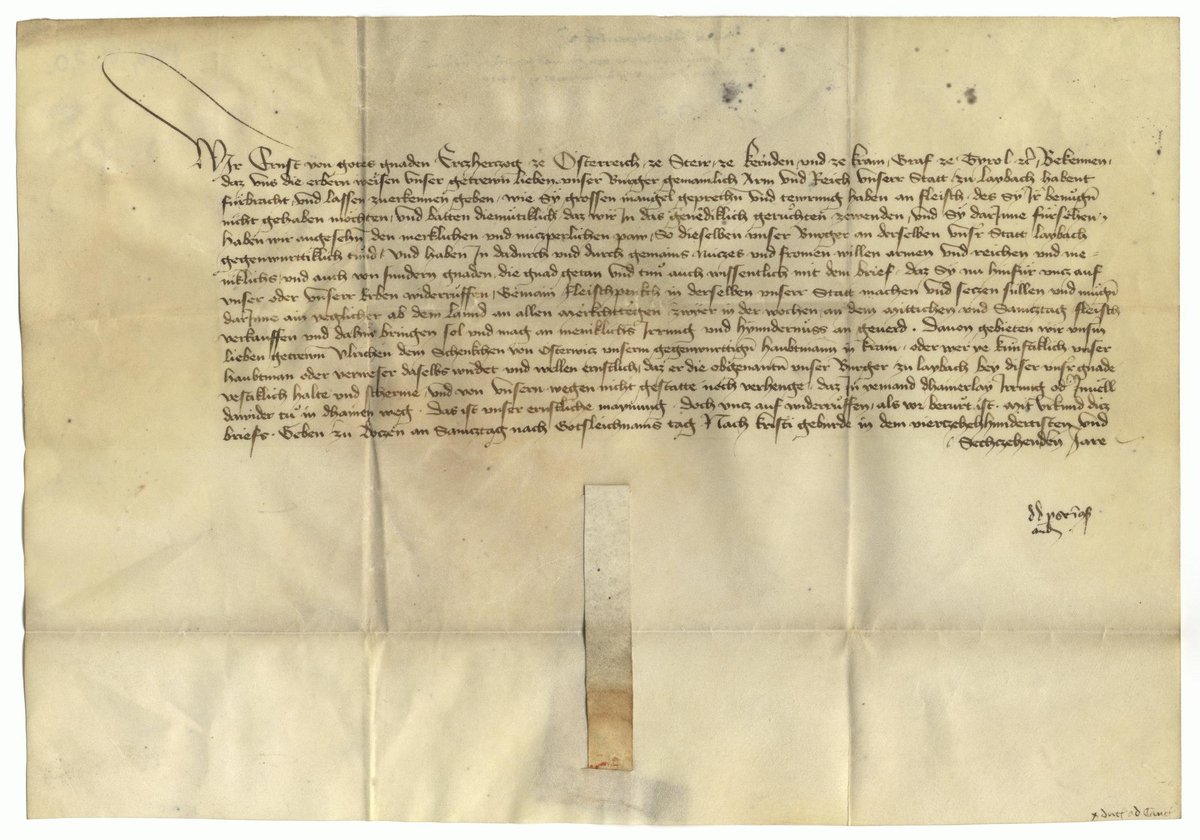 Wir Ernst von gotes gnaden Erczherczog ze Osterreich, ze Steir, ze kernden, und ze krain, Graf ze Tyrol etc. Bekennen,
daz uns die erbern weisen unser getrewn lieben, unser Burger gemainlich Arm und Reich unserr Statt, zu laybach habent
fürbracht, und lassen zuerkennen geben, wie Sy grossen mangel geprechn und tewrung haben an fleisch, des Sy Ir benugn
nicht gehaben mochten, und batten diemuticlich, daz wir In das genediclich geruchten zewenden, und Sy darInne fürsehen,
haben wir angesehn den merklichen und nuczperlichen paw, So dieselben unser Burger an derselben unsr Statt laybach
gegenwurtticlich tund, und haben In dadurch und durch gemains nuczes und fromen willen armen und reichen und me-
niklichs, und auch von sundern gnaden, die gnad getan und tun auch wissentlich mit dem brief, daz Sy nu hinfür uncz auf
unser oder unserr Erben widerruffen, Gemain fleischpenkch in derselben unserr Statt machen und seczen sullen und mugn
darInne ain yeglicher ab dem lannd an allen Merkchttegen zwir in der wochen, an dem mittichen und Samcztag fleisch
verkauffen und dahin bringen sol und mag an meniklichs Irrung und hynndernüss an geverd. Davon gebieten wir unsm
lieben getrewn Ulrichen dem Schenkchen von Osterwicz unserm gegenwurttign haubtmann in krain, oder wer ye künfticlich unser
haubtman oder verweser daselbs wirdet und wellen ernstlich, daz er die obgenantn unser Burger zu laybach bey diser unsr gnade
vesticlich halte und scherme, und von unsern wegen nicht gestatte noch verhenge, daz In yemand dhainerlay Irrung oder Inuell
dawider tu in dhainen weg. Das ist unser ernstliche maynung. Doch uncz auf widerruffen, als vor berurt ist. Mit Urkund dicz
briefs. Geben zu Boczen an Samcztag nach Gotsleichnams tag Nach kristi geburde in dem vierczehenhundertisten und
Sechczehenden Jare